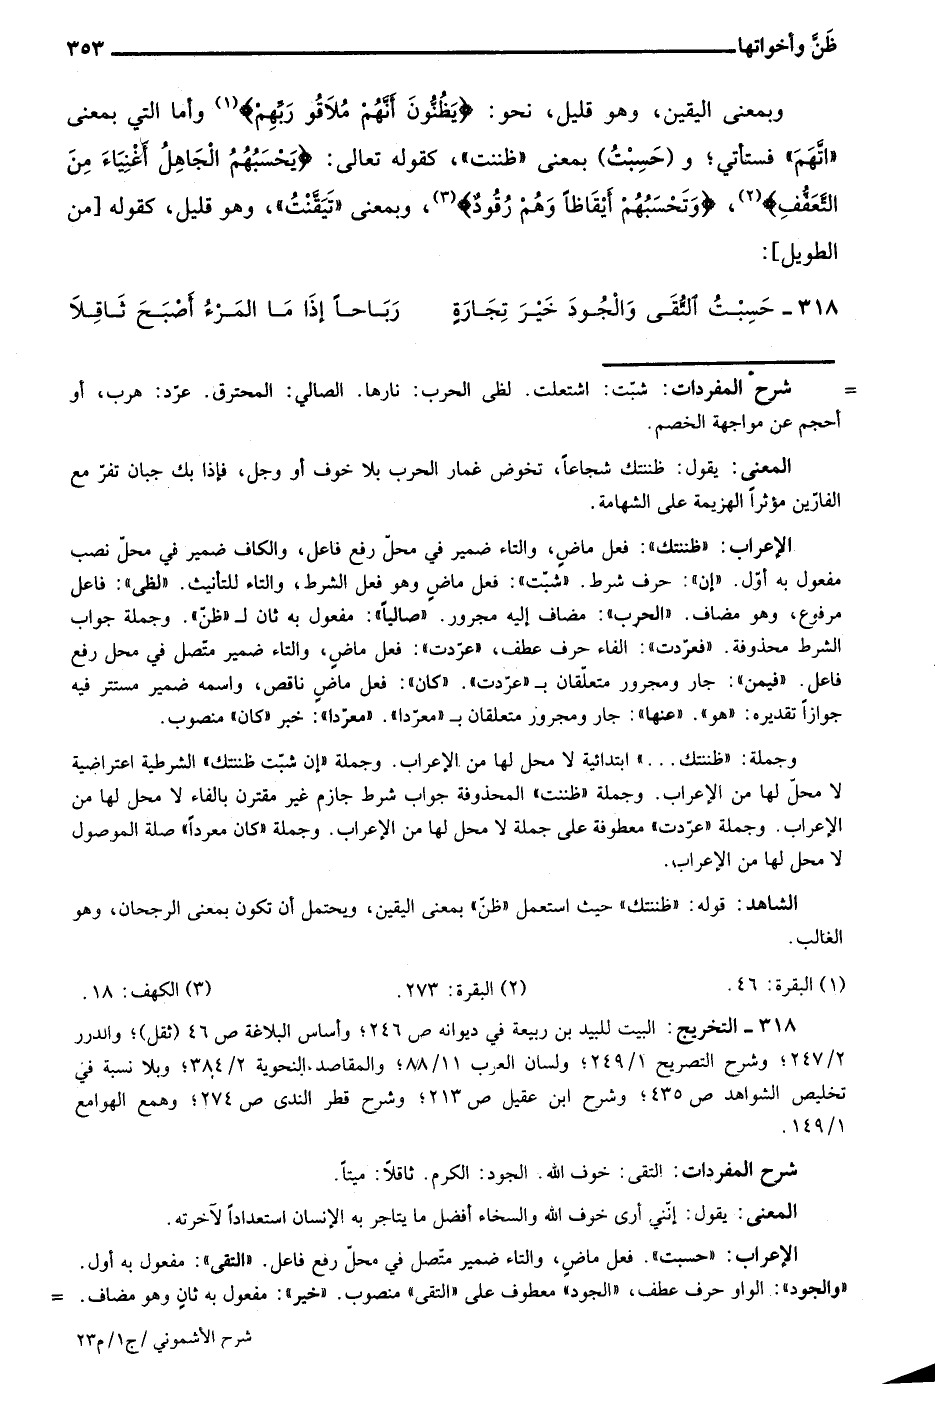 ظَنَّ وأخواتها ٣٥٣
وبمعنى اليقين، وهو قليل، نحو: ﴿يَظُنُّونَ أَنَّهُمْ مُلَاقُو رَبِّهِمْ﴾(١) وأما التي بمعنى
«اتَّهَمَ» فستأتي؛ و (حَسِبْتُ) بمعنى «ظننت»، كقوله تعالى: ﴿يَحْسَبُهُمُ الْجَاهِلُ أَغْنِيَاءَ مِنَ
التَّعَفُّفِ﴾(٢)، ﴿وَتَحْسَبُهُمْ أَيْقَاظاً وَهُمْ رُقُودٌ﴾(٣)، وبمعنى «تَيَقَّنْتُ»، وهو قليل، كقوله [من
الطويل]:
٣١٨ - حَسِبْتُ التُّقَى وَالْجُودَ خَيْرَ تِجَارَةٍ رَبَاحاً إِذَا مَا المَرْءُ أَصْبَحَ ثَاقِلَا
= شرح المفردات: شبّت: اشتعلت. لظى الحرب: نارها. الصالي: المحترق. عرّد: هرب، أو
أحجم عن مواجهة الخصم.
المعنى: يقول: ظننتك شجاعاً، تخوض غمار الحرب بلا خوف أو وجل، فإذا بك جبان تفرّ مع
الفارّين مؤثراً الهزيمة على الشهامة.
الإعراب: «ظننتك»: فعل ماضٍ، والتاء ضمير في محلّ رفع فاعل، والكاف ضمير في محلّ نصب
مفعول به أوّل. «إن»: حرف شرط. «شبّت»: فعل ماضٍ وهو فعل الشرط، والتاء للتأنيث. «لظى»: فاعل
مرفوع، وهو مضاف. «الحرب»: مضاف إليه مجرور. «صالياً»: مفعول به ثان لـ «ظنّ». وجملة جواب
الشرط محذوفة. «فعرّدت»: الفاء حرف عطف، «عرّدت»: فعل ماضٍ، والتاء ضمير متّصل في محل رفع
فاعل. «فيمن»: جار ومجرور متعلّقان بـ «عرّدت». «كان»: فعل ماضٍ ناقص، واسمه ضمير مستتر فيه
جوازاً تقديره: «هو». «عنها»: جار ومجرور متعلقان بـ «معرّدا». «معرّدا»: خبر «كان» منصوب.
وجملة: «ظننتك...» ابتدائية لا محل لها من الإعراب. وجملة «إن شبّت ظننتك» الشرطية اعتراضية
لا محلّ لها من الإعراب. وجملة «ظننت» المحذوفة جواب شرط جازم غير مقترن بالفاء لا محل لها من
الإعراب. وجملة «عرّدت» معطوفة على جملة لا محل لها من الإعراب. وجملة «كان معرداً» صلة الموصول
لا محل لها من الإعراب.
الشاهد: قوله: «ظننتك» حيث استعمل «ظنّ» بمعنى اليقين، ويحتمل أن تكون بمعنى الرجحان، وهو
الغالب.
(١) البقرة: ٤٦. (٢) البقرة: ٢٧٣. (٣) الكهف: ١٨.
٣١٨ - التخريج: البيت للبيد بن ربيعة في ديوانه ص ٢٤٦؛ وأساس البلاغة ص ٤٦ (ثقل)؛ والدرر
٢٤٧/٢؛ وشرح التصريح ٢٤٩/١؛ ولسان العرب ٨٨/١١؛ والمقاصد النحوية ٣٨٤/٢؛ وبلا نسبة في
تخليص الشواهد ص ٤٣٥؛ وشرح ابن عقيل ص ٢١٣؛ وشرح قطر الندى ص ٢٧٤؛ وهمع الهوامع
١٤٩/١.
شرح المفردات: التقى: خوف الله. الجود: الكرم. ثاقلاً: ميتاً.
المعنى: يقول: إنّني أرى خوف الله والسخاء أفضل ما يتاجر به الإنسان استعداداً لآخرته.
الإعراب: «حسبت». فعل ماضٍ، والتاء ضمير متّصل في محلّ رفع فاعل. «التقى»: مفعول به أول.
«والجود»: الواو حرف عطف، «الجود» معطوف على «التقى» منصوب. «خير»: مفعول به ثانٍ وهو مضاف. =
شرح الأشموني /ج١/ م٢٣